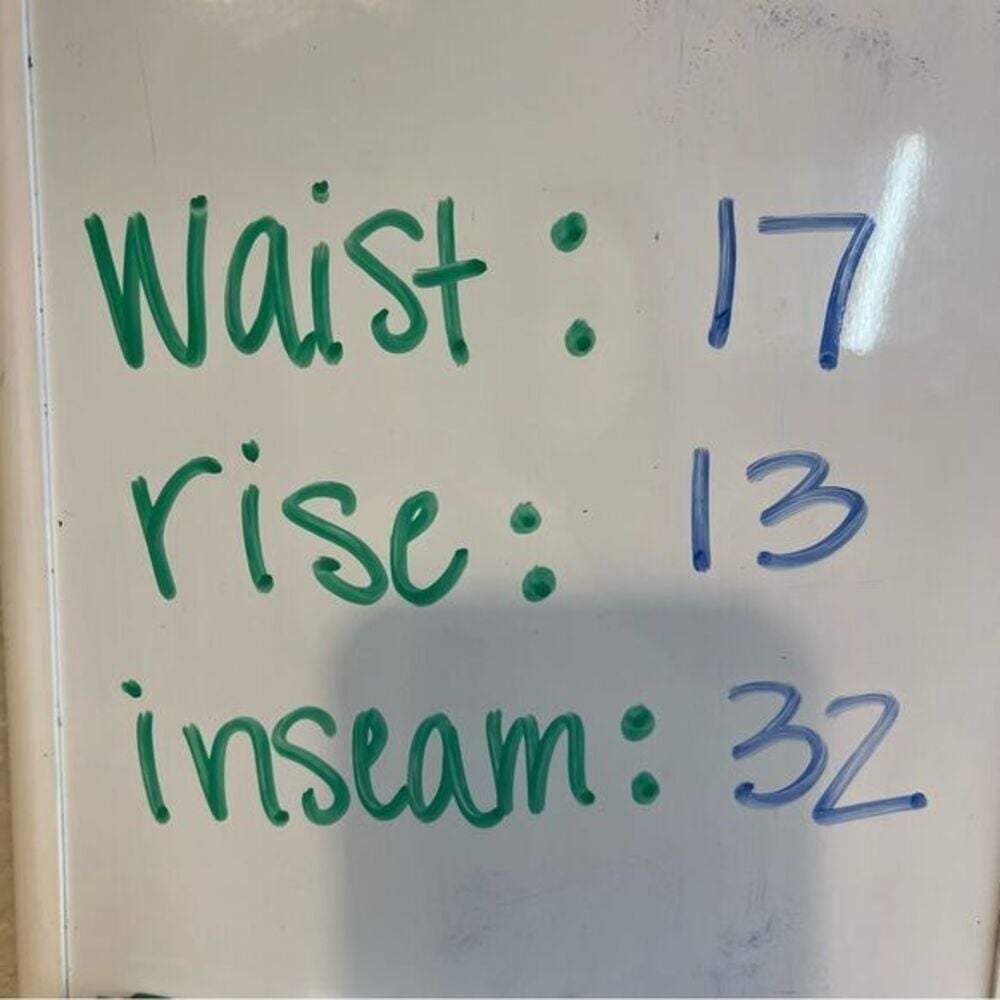 Waist: 17
rise: 13
inseam: 32